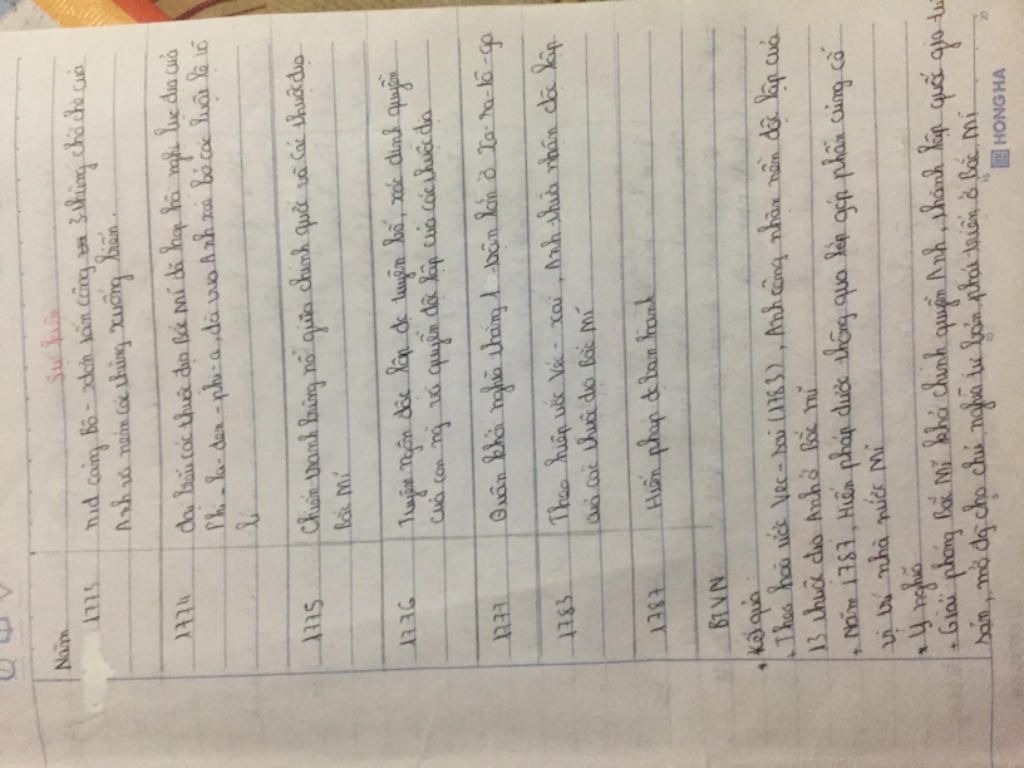 Năm Sự kiện
1773 nd cảng Bô-xtơn tấn công 3 thùng chở chè của
Anh và ném các thùng xuống biển.
1774 đại biểu các thuộc địa Bắc Mĩ đã họp hội nghị lục địa ở
Phi-la-đen-phi-a, đòi vua Anh xoá bỏ các luật lệ vô
lí
1775 Chiến tranh bùng nổ giữa chính quốc và các thuộc địa
Bắc Mĩ
1776 Tuyên ngôn độc lập đc tuyên bố, xác định quyền
của con ng và quyền độc lập của các thuộc địa
1777 Quân khởi nghĩa thắng 1 trận lớn ở Xa-ra-tô-ga
1783 Theo hiệp ước Véc-xai, Anh thừa nhận độc lập
của các thuộc địa Bắc Mĩ
1787 Hiến pháp đc ban hành
BTVN
* Kết quả:
+ Theo hoà ước Véc-xai (1783), Anh công nhận nền độc lập của
13 thuộc địa Anh ở Bắc Mĩ
+ Năm 1787, Hiến pháp được thông qua góp phần củng cố
vị trí nhà nước Mĩ
* Ý nghĩa
+ Giải phóng Bắc Mĩ khỏi chính quyền Anh, thành lập quốc gia tư
bản, mở đg cho chủ nghĩa tư bản phát triển ở Bắc Mĩ
HONG HA